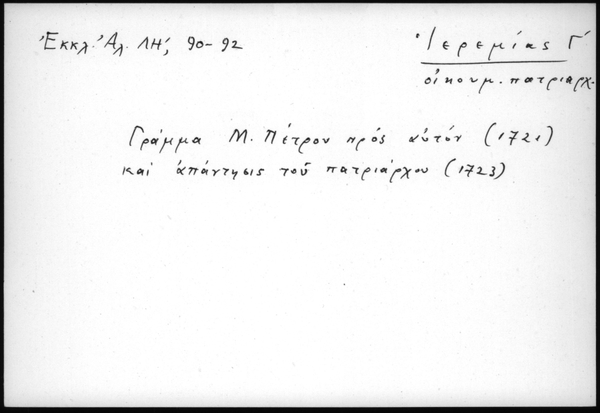 Ἐκκλ. Ἀλ. ΛΗ', 90-92
Ἱερεμίας Γ'
οἰκουμ. πατριάρχ.
Γράμμα Μ. Πέτρου πρὸς αὐτόν (1721)
καὶ ἀπάντησις τοῦ πατριάρχου (1723)